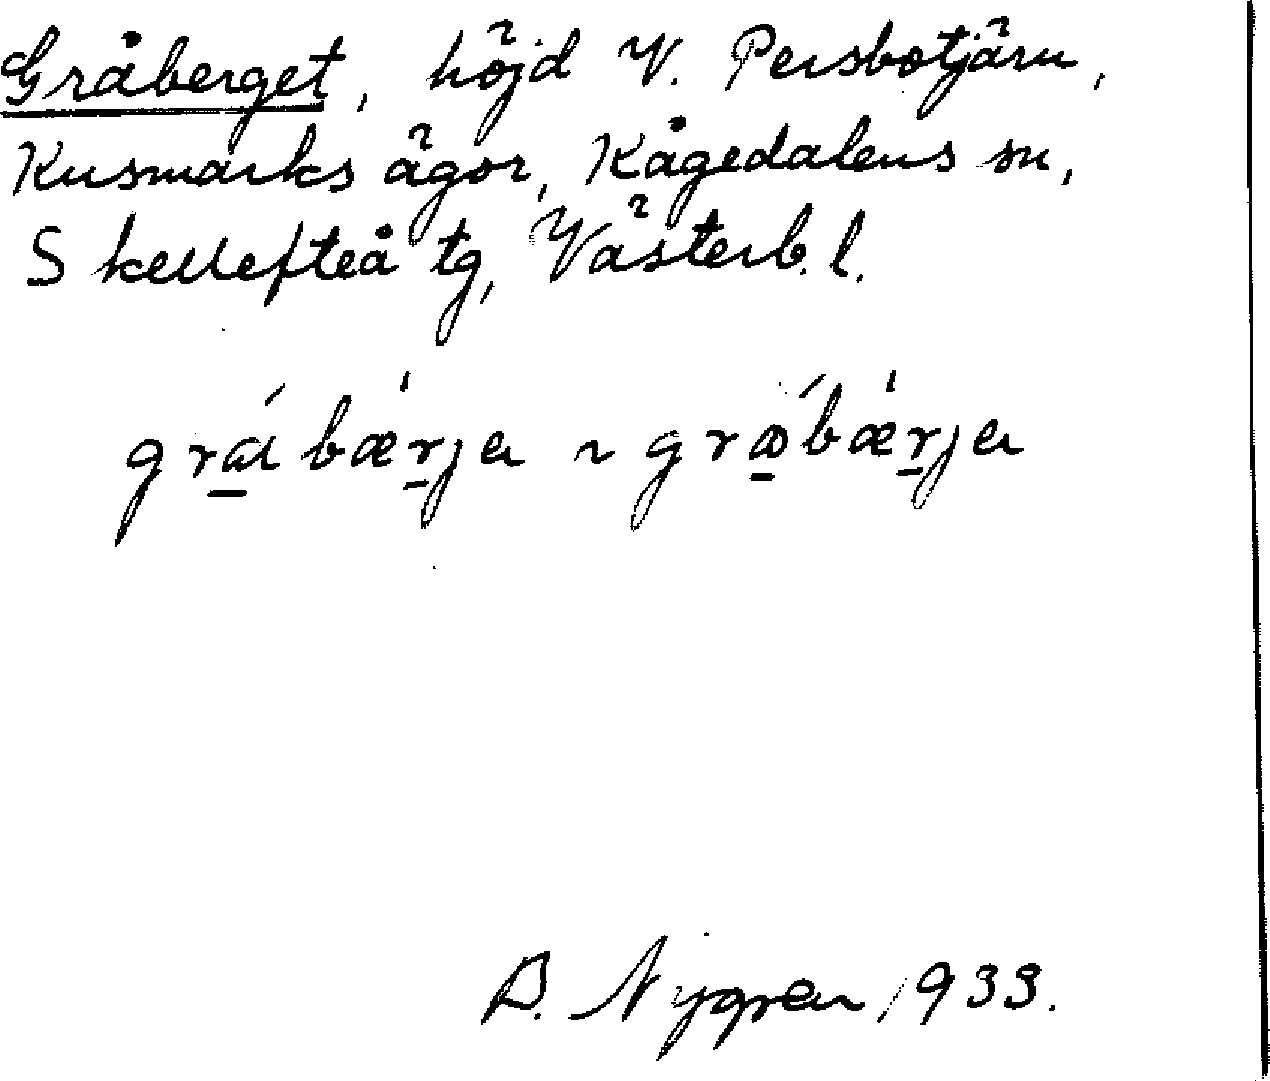 Gråberget, höjd V. Persbotjärn,
Kusmarks ägor, Kågedalens sn,
Skellefteå tg, Västerb. l.
grábær̠ja ~ gróbær̠ja
A. Nygren 1933.